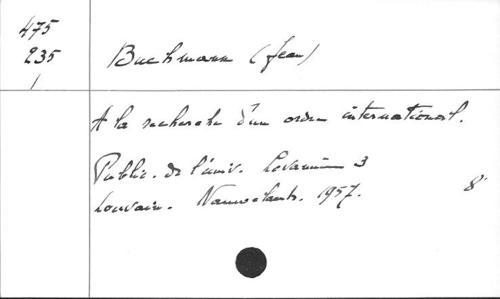 475
235
/
Buchmann (Jean)
A la recherche d'un ordre international.
Public. de l'univ. Lovanium 3
Louvain. Nauwelaerts. 1957.
8°